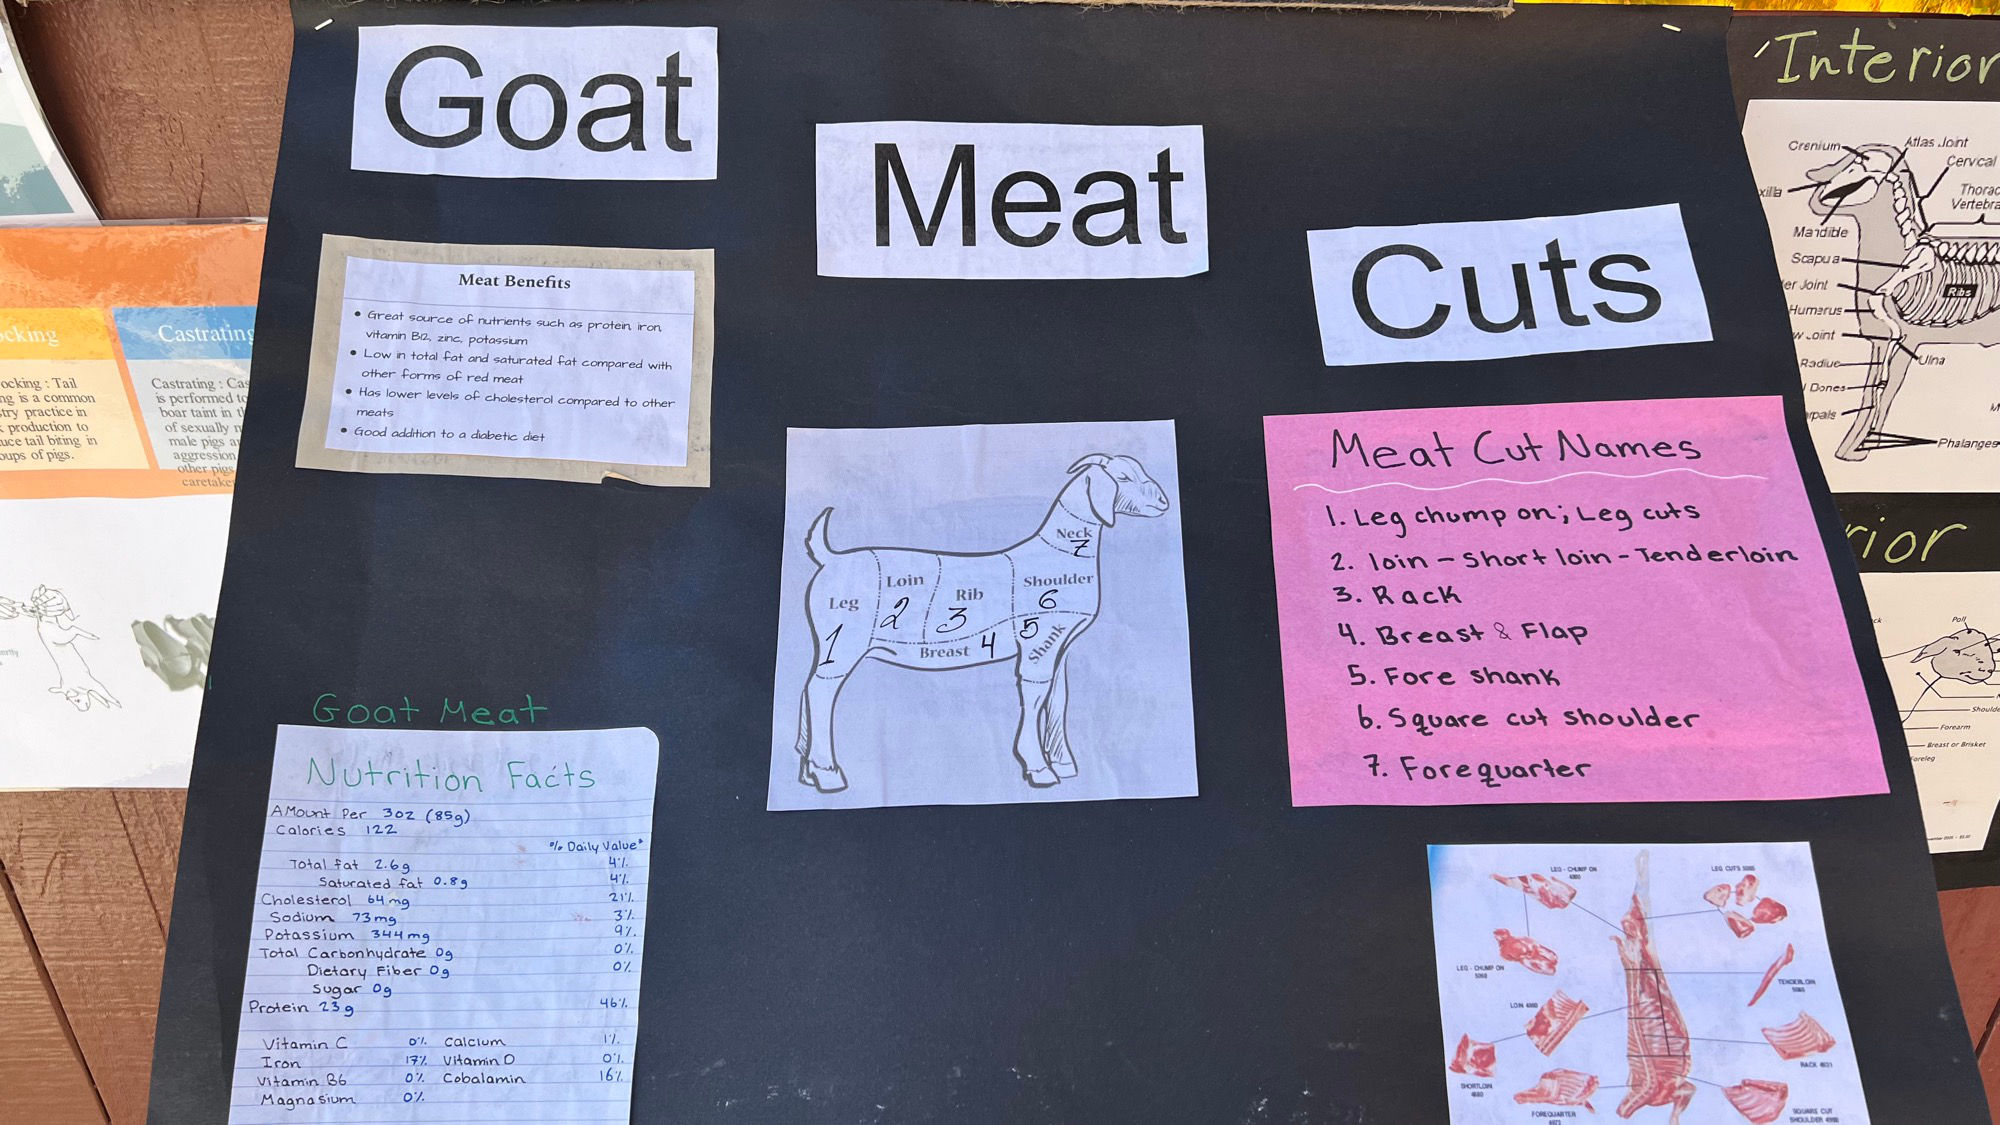 Goat
Meat
Cuts
Meat Benefits
• Great source of nutrients such as protein, iron,
vitamin B12, zinc, potassium
• Low in total fat and saturated fat compared with
other forms of red meat
• Has lower levels of cholesterol compared to other
meats
• Good addition to a diabetic diet
Neck
7
Leg
1
Loin
2
Rib
3
Shoulder
6
Breast 4
5
Shank
Meat Cut Names
1. Leg chump on; Leg cuts
2. loin - Short loin - Tenderloin
3. Rack
4. Breast & Flap
5. Fore shank
6. Square cut shoulder
7. Forequarter
Goat Meat
Nutrition Facts
Amount Per 3oz (85g)
Calories 122
% Daily Value*
Total fat 2.6g 4%
Saturated fat 0.8g 4%
Cholesterol 64mg 21%
Sodium 73mg 3%
Potassium 344mg 9%
Total Carbonhydrate 0g 0%
Dietary Fiber 0g 0%
Sugar 0g
Protein 23g 46%
Vitamin C 0% Calcium 1%
Iron 17% Vitamin D 0%
Vitamin B6 0% Cobalamin 16%
Magnasium 0%
LEG - CHUMP ON
LEG CUTS
LEG - CHUMP ON
TENDERLOIN
LOIN
RACK
SHORTLOIN
FOREQUARTER
SQUARE CUT
SHOULDER
Interior
Cranium
Atlas Joint
Cervical
xilla
Thorac
Vertebra
Mandible
Scapula
er Joint
Ribs
Humerus
w Joint
Ulna
Radius
l Bones
rpals
Phalanges
rior
Poll
Shoulde
Forearm
Breast or Brisket
Foreleg
ocking
ocking : Tail
ng is a common
stry practice in
k production to
uce tail biting in
oups of pigs.
Castrating
Castrating : Cas
is performed to
boar taint in th
of sexually m
male pigs a
aggression
other pigs
caretake